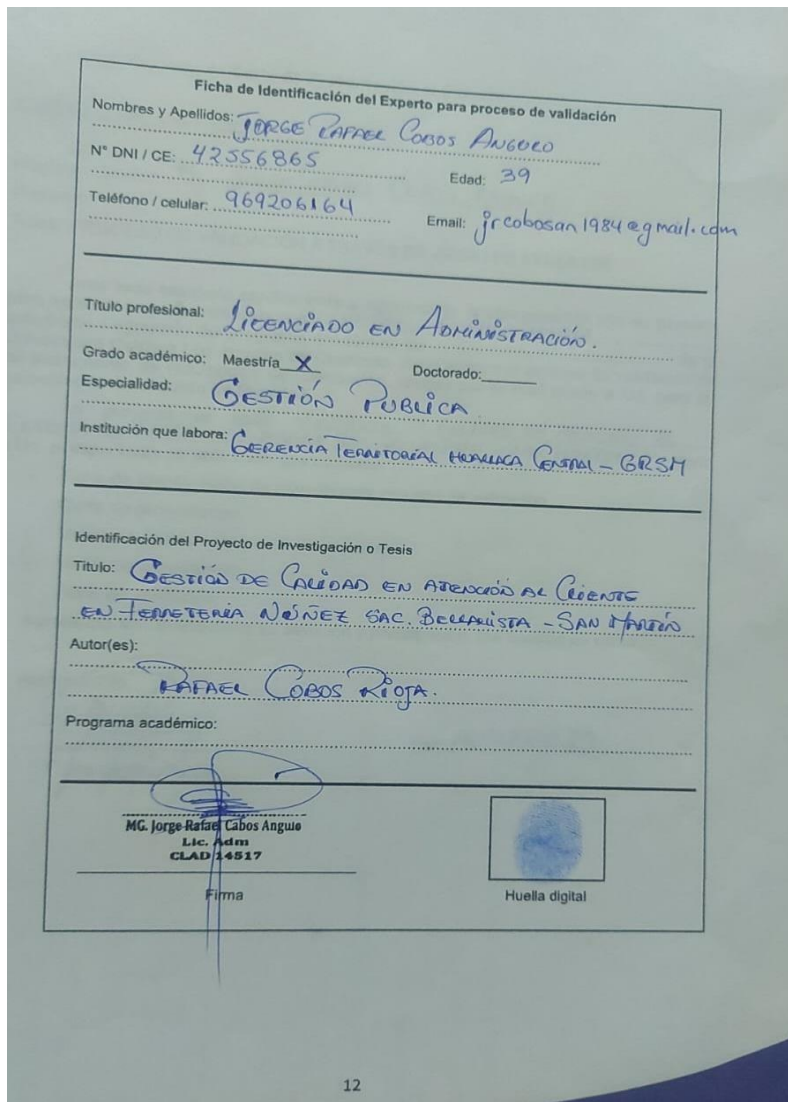 Ficha de Identificación del Experto para proceso de validación
Nombres y Apellidos: JORGE RAFAEL COBOS ANGULO
N° DNI / CE: 42556865 Edad: 39
Teléfono / celular: 969206164 Email: jrcobosan1984@gmail.com
Título profesional: LICENCIADO EN ADMINISTRACIÓN.
Grado académico: Maestría X Doctorado:
Especialidad: GESTIÓN PUBLICA
Institución que labora: GERENCIA TERRITORIAL HUALLAGA CENTRAL - GRSM
Identificación del Proyecto de Investigación o Tesis
Titulo: GESTIÓN DE CALIDAD EN ATENCIÓN AL CLIENTE
EN FERRETERÍA NÚÑEZ SAC. BELLAVISTA - SAN MARTÍN
Autor(es):
RAFAEL COBOS RIOJA.
Programa académico:
MG. Jorge Rafael Cabos Angulo
Lic. Adm
CLAD 14517
Firma Huella digital
12